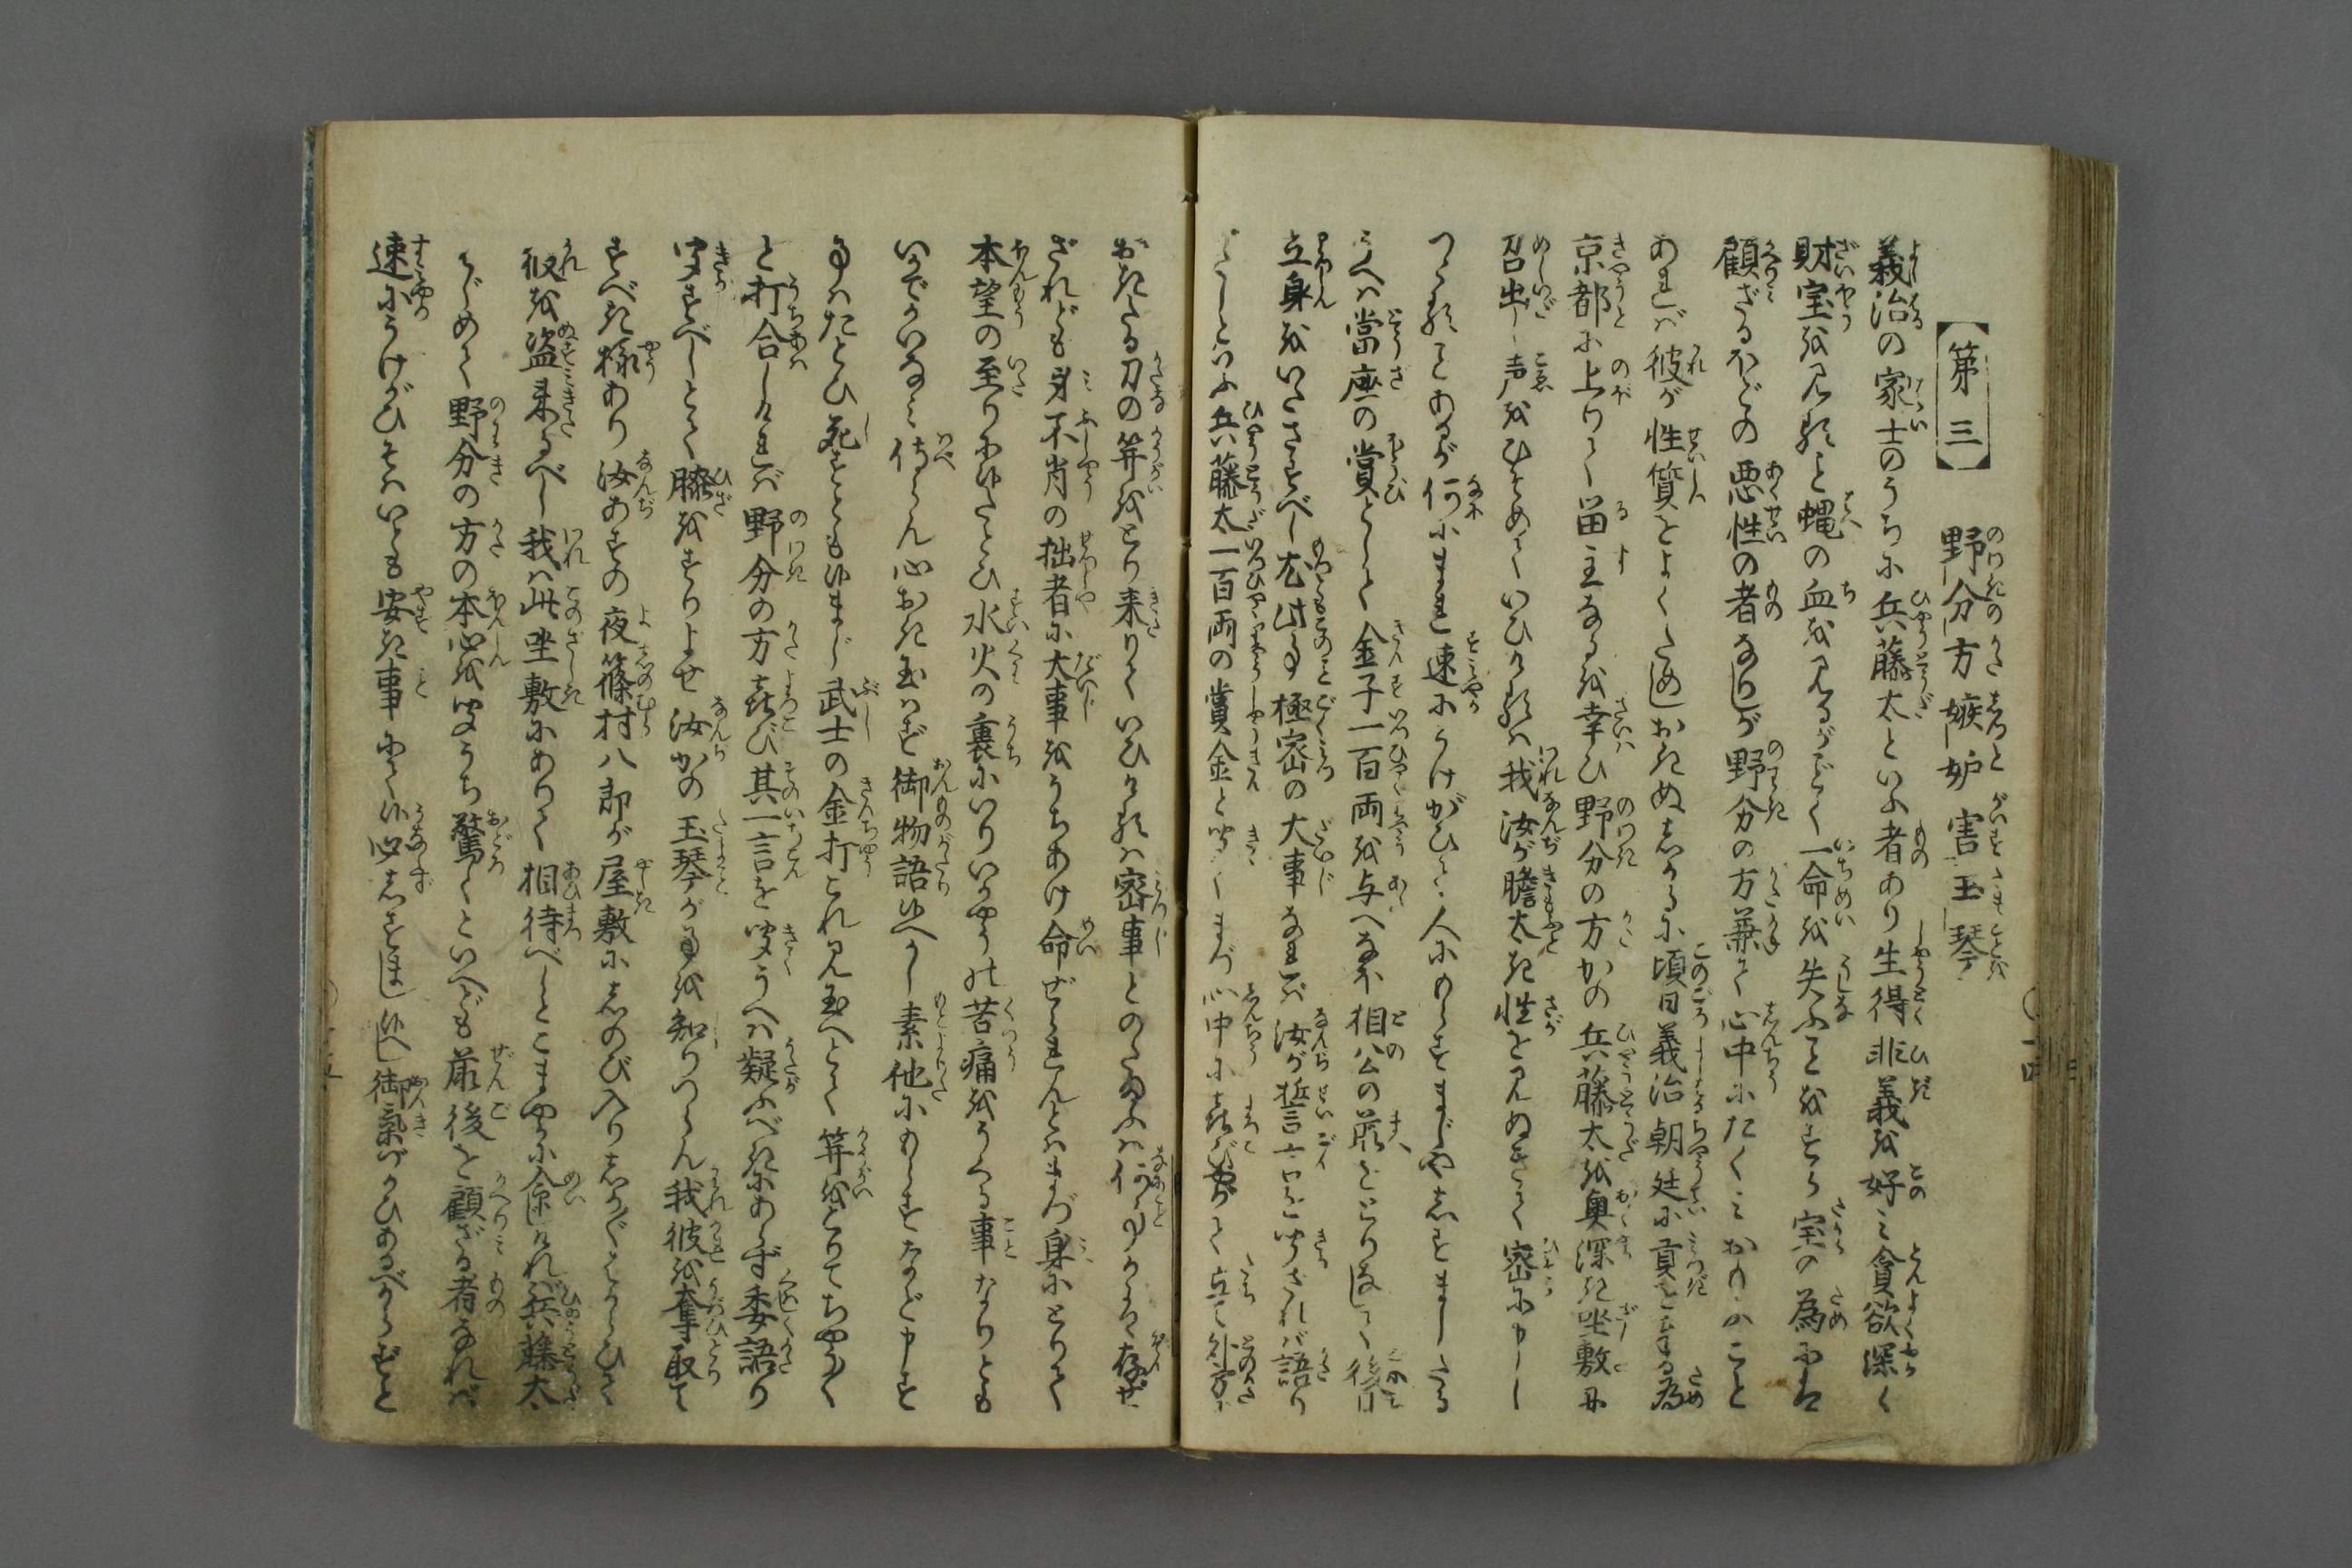 第三　野分方嫉妒害玉琴
義治の家士のうちに兵藤太といふ者あり生得非義を好ミ貪欲深く
財宝を見ること蝿の血を見るがごとく一命を失ふことをすら宝の為にハ
顧ざるほどの悪性の者なりしが野分の方兼て心中にたくミおりのこと
あれば彼が性質をよくためしおきぬしかるに頃日義治朝廷に貢を奉る為
京都に上りて留主なるを幸ひ野分の方かの兵藤太を奥深き坐敷に
召出し声をひそめていひけるハ我汝が膽太き性を見ぬきて密に申し
つくることあるが何にまれ速にうけがひて人にもらすまじや志すましたる
うへハ當座の賞として金子一百両を与へなほ相公の前をとりなして後日
立身をいたさすべし尤此事極密の大事なれバ汝が誓言を聞ざれバ語り
がたしといふ兵藤太一百両の賞金と聞てまづ心中に喜び
おきたる刀の笄をとり来りていひけるハ密事とのたまふハ何事かハ存ぜ
ざれども身不肖の拙者に大事をうちあけ命ぜられんとハまづ身にとりて
本望の至りに候たとひ水火の裏にいりいかやうの苦痛をうくる事なりとも
いかでかいなミ侍らん心おき玉ハず御物語候へかし素他にもらすなど申す
事ハたとひ死すとも候まじ武士の金打これ見玉へとて笄をとりてちやうど
と打合しければ野分の方喜び其一言を聞うへハ疑ふべきにあらず委語り
聞すべしとて膝をすりよせ汝かの玉琴が事を知りつらん我彼を奪取て
すべき様あり汝あすの夜篠村八郎が屋敷にしのび入りしか〴〵はからひて
彼を盗来るべし我ハ此坐敷にありて相待べしとこまやかに命じければ兵藤太
はじめて野分の方の本心を聞うち驚くといへども前後を顧ざる者なれバ
速にうけがひそハいとも安き事にて候必しすまし候べし御氣づかひあるべからずと